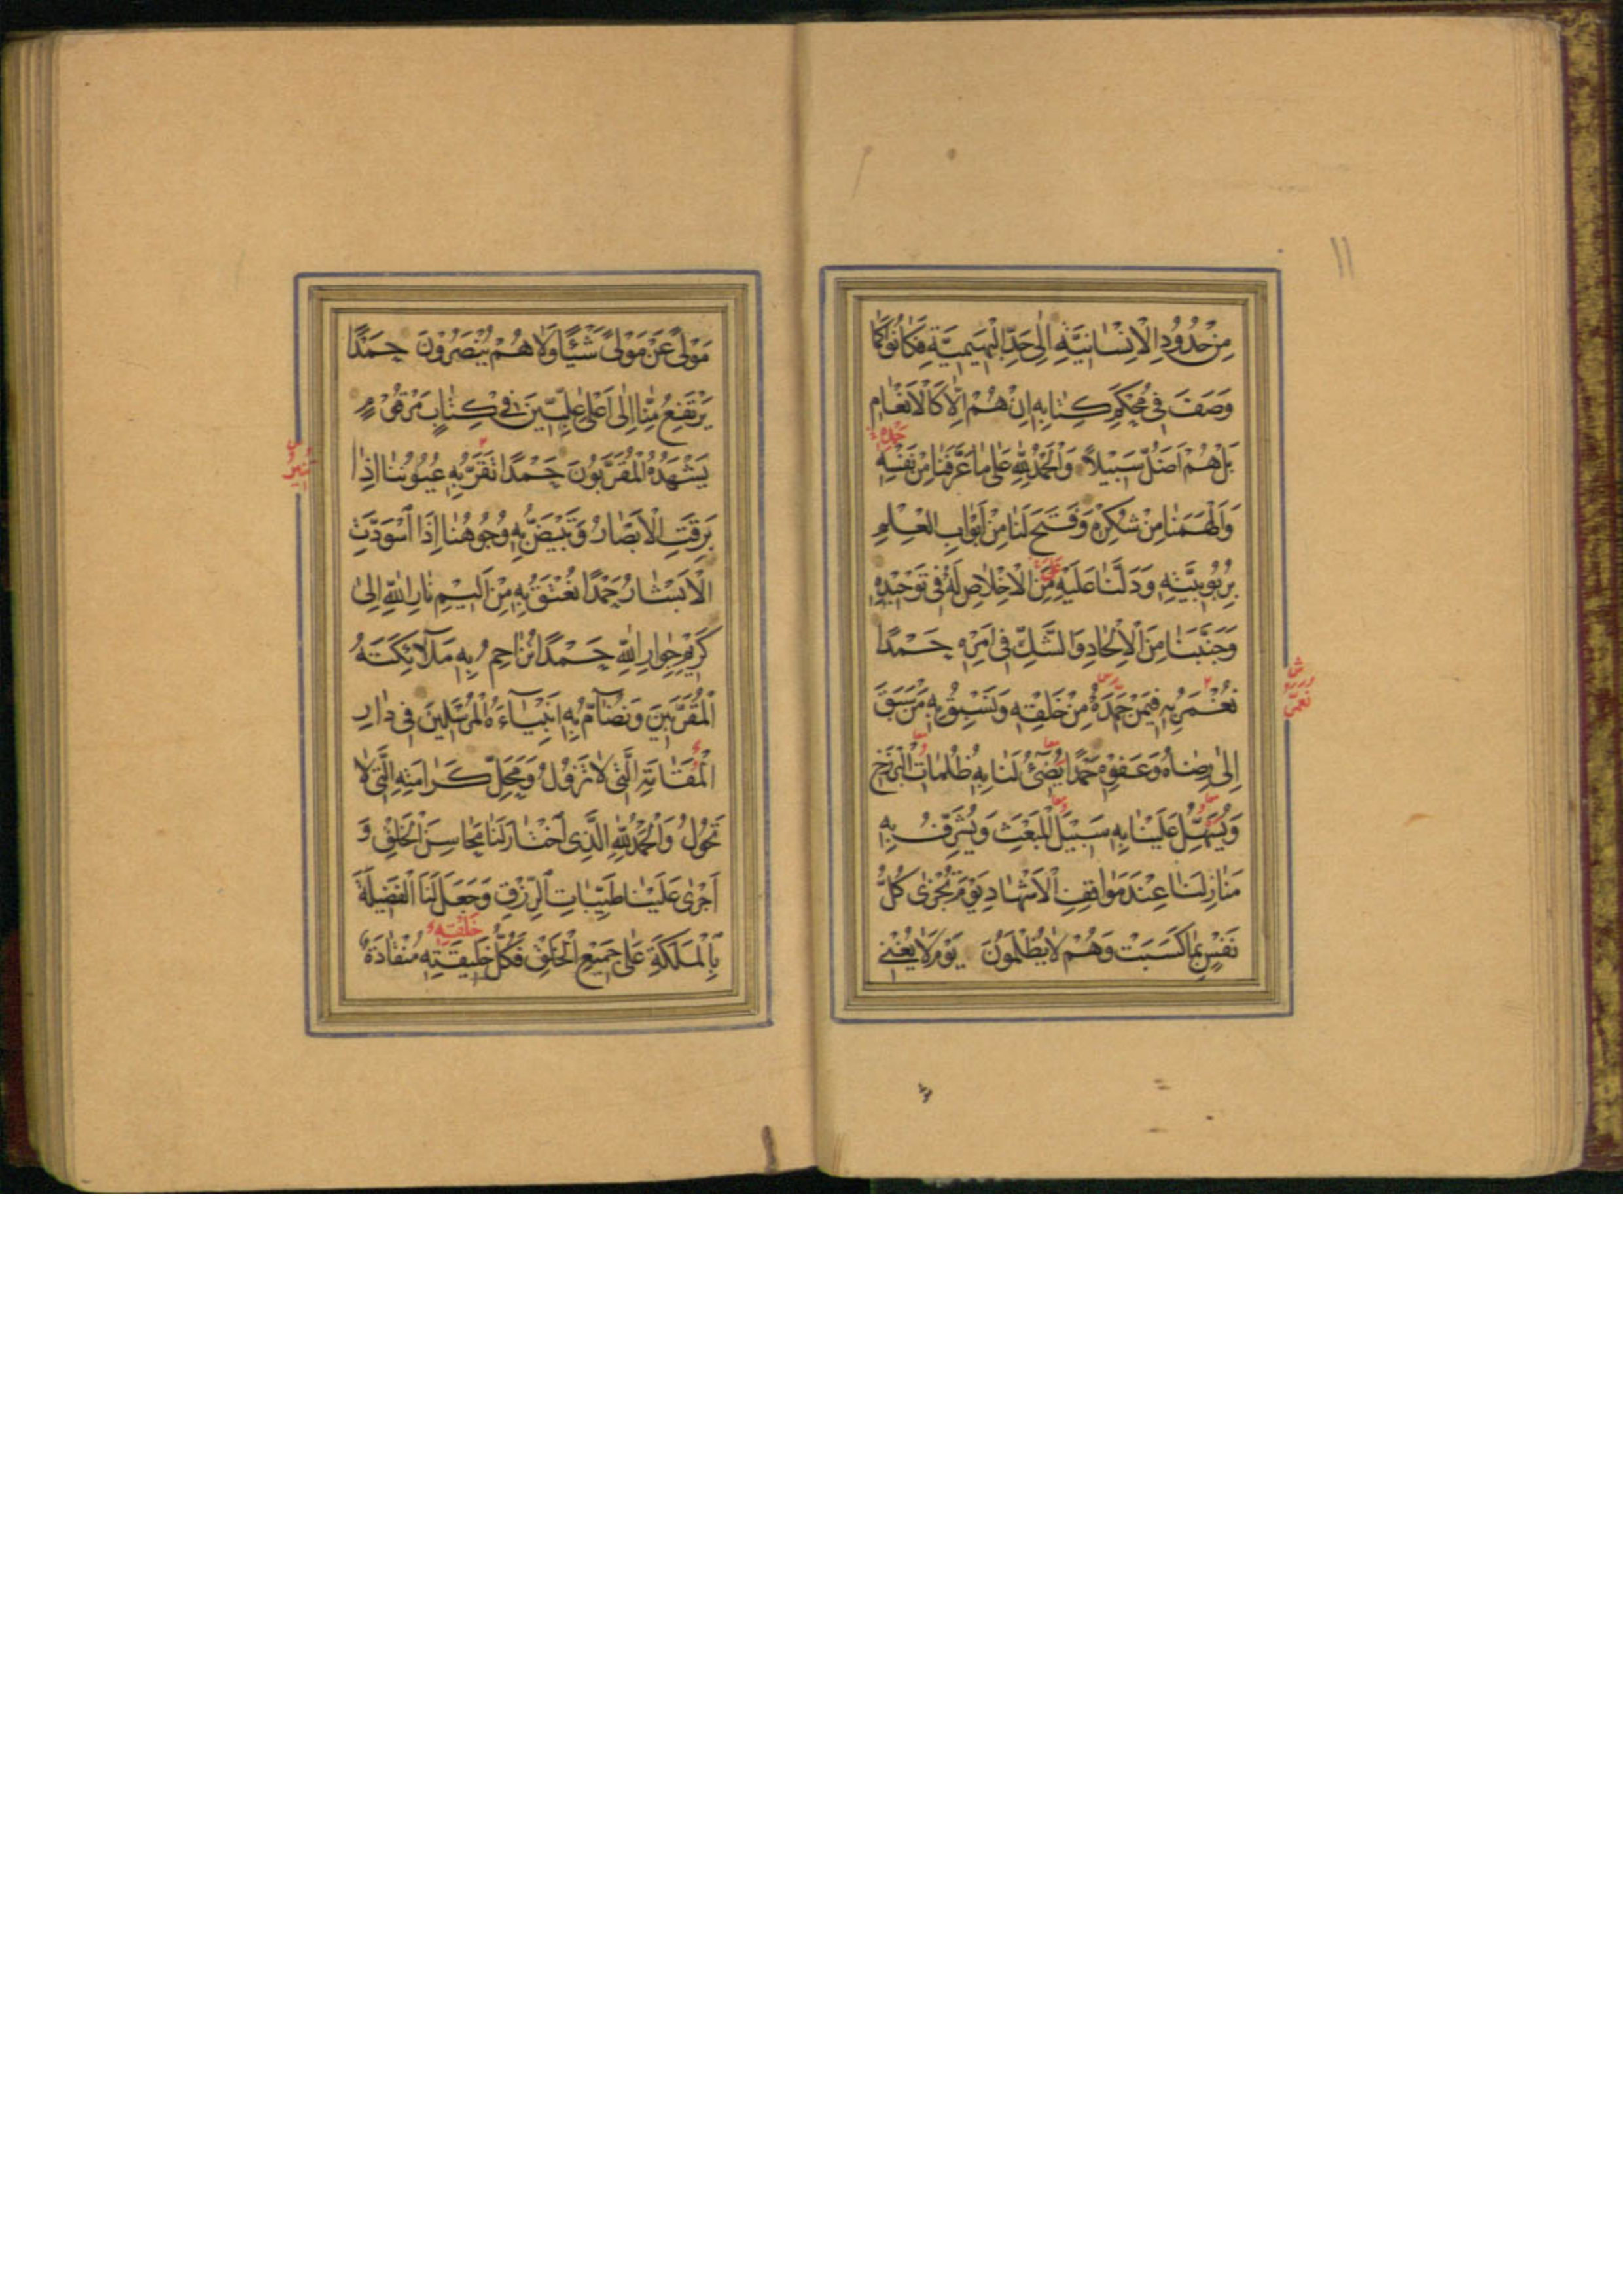 ١١
مِنْ حُدُودِ الْاِنْسَانِيَّةِ اِلٰى حَدِّ الْبَهِيمِيَّةِ فَكَانُوا كَمَا
وَصَفَ فِى مُحْكَمِ كِتَابِهِ اِنْ هُمْ اِلَّا كَالْاَنْعَامِ
بَلْ هُمْ اَضَلُّ سَبِيلًا وَالْحَمْدُ لِلّٰهِ عَلٰى مَا عَرَّفَنَا مِنْ نَفْسِهِ
وَاَلْهَمَنَا مِنْ شُكْرِهِ وَفَتَحَ لَنَا مِنْ اَبْوَابِ الْعِلْمِ
بِرُبُوبِيَّتِهِ وَدَلَّنَا عَلَيْهِ مِنَ الْاِخْلَاصِ لَهُ فِى تَوْحِيدِهِ
وَجَنَّبَنَا مِنَ الْاِلْحَادِ وَالشَّكِّ فِى اَمْرِهِ حَمْدًا
نُعَمَّرُ بِهِ فِيمَنْ حَمِدَهُ مِنْ خَلْقِهِ وَنَسْبِقُ بِهِ مَنْ سَبَقَ
اِلٰى رِضَاهُ وَعَفْوِهِ حَمْدًا يُضِىءُ لَنَا بِهِ ظُلُمَاتِ الْبَرْزَخِ
وَيُسَهِّلُ عَلَيْنَا بِهِ سَبِيلَ الْمَبْعَثِ وَيُشَرِّفُ بِهِ
مَنَازِلَنَا عِنْدَ مَوَاقِفِ الْاَشْهَادِ يَوْمَ تُجْزٰى كُلُّ
نَفْسٍ بِمَا كَسَبَتْ وَهُمْ لَا يُظْلَمُونَ يَوْمَ لَا يُغْنِى
مَوْلًى عَنْ مَوْلًى شَيْئًا وَلَا هُمْ يُنْصَرُونَ حَمْدًا
يَرْتَفِعُ مِنَّا اِلٰى اَعْلٰى عِلِّيِّينَ فِى كِتَابٍ مَرْقُومٍ
يَشْهَدُهُ الْمُقَرَّبُونَ حَمْدًا تَقَرُّ بِهِ عُيُونُنَا اِذَا
بَرِقَتِ الْاَبْصَارُ وَتَبْيَضُّ بِهِ وُجُوهُنَا اِذَا اسْوَدَّتِ
الْاَبْشَارُ حَمْدًا نُعْتَقُ بِهِ مِنْ اَلِيمِ نَارِ اللّٰهِ اِلٰى
كَرِيمِ جِوَارِ اللّٰهِ حَمْدًا نُزَاحِمُ بِهِ مَلَآئِكَتَهُ
الْمُقَرَّبِينَ وَنُضَآمُّ بِهِ اَنْبِيَآءَهُ الْمُرْسَلِينَ فِى دَارِ
الْمُقَامَةِ الَّتِى لَا تَزُولُ وَمَحَلِّ كَرَامَتِهِ الَّتِى لَا
تَحُولُ وَالْحَمْدُ لِلّٰهِ الَّذِى اخْتَارَ لَنَا مَحَاسِنَ الْخَلْقِ وَ
اَجْرٰى عَلَيْنَا طَيِّبَاتِ الرِّزْقِ وَجَعَلَ لَنَا الْفَضِيلَةَ
بِالْمَلَكَةِ عَلٰى جَمِيعِ الْخَلْقِ فَكُلُّ خَلِيقَتِهِ مُنْقَادَةٌ